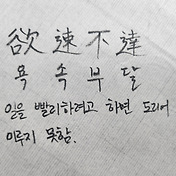 欲速不達
욕속부달
일을 빨리하려고 하면 도리어
이루지 못함.